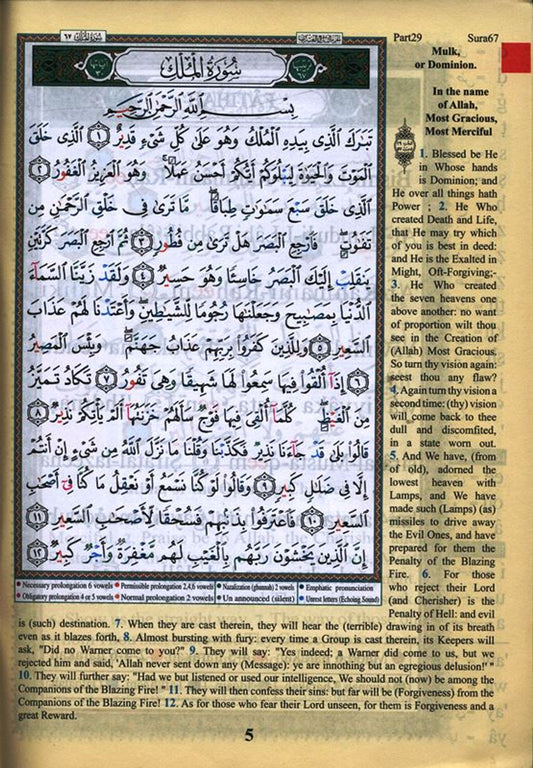 Part29 Sura67
سُورَةُ المُلْكِ
بِسْمِ اللَّهِ الرَّحْمَٰنِ الرَّحِيمِ
تَبَٰرَكَ ٱلَّذِى بِيَدِهِ ٱلْمُلْكُ وَهُوَ عَلَىٰ كُلِّ شَىْءٍ قَدِيرٌ ١ ٱلَّذِى خَلَقَ
ٱلْمَوْتَ وَٱلْحَيَوٰةَ لِيَبْلُوَكُمْ أَيُّكُمْ أَحْسَنُ عَمَلًا ۚ وَهُوَ ٱلْعَزِيزُ ٱلْغَفُورُ ٢
ٱلَّذِى خَلَقَ سَبْعَ سَمَٰوَٰتٍ طِبَاقًا ۖ مَّا تَرَىٰ فِى خَلْقِ ٱلرَّحْمَٰنِ مِن
تَفَٰوُتٍ ۖ فَٱرْجِعِ ٱلْبَصَرَ هَلْ تَرَىٰ مِن فُطُورٍ ٣ ثُمَّ ٱرْجِعِ ٱلْبَصَرَ كَرَّتَيْنِ
يَنقَلِبْ إِلَيْكَ ٱلْبَصَرُ خَاسِئًا وَهُوَ حَسِيرٌ ٤ وَلَقَدْ زَيَّنَّا ٱلسَّمَآءَ
ٱلدُّنْيَا بِمَصَٰبِيحَ وَجَعَلْنَٰهَا رُجُومًا لِّلشَّيَٰطِينِ ۖ وَأَعْتَدْنَا لَهُمْ عَذَابَ
ٱلسَّعِيرِ ٥ وَلِلَّذِينَ كَفَرُوا۟ بِرَبِّهِمْ عَذَابُ جَهَنَّمَ ۖ وَبِئْسَ ٱلْمَصِيرُ
٦ إِذَآ أُلْقُوا۟ فِيهَا سَمِعُوا۟ لَهَا شَهِيقًا وَهِىَ تَفُورُ ٧ تَكَادُ تَمَيَّزُ
مِنَ ٱلْغَيْظِ ۖ كُلَّمَآ أُلْقِىَ فِيهَا فَوْجٌ سَأَلَهُمْ خَزَنَتُهَآ أَلَمْ يَأْتِكُمْ نَذِيرٌ ٨
قَالُوا۟ بَلَىٰ قَدْ جَآءَنَا نَذِيرٌ فَكَذَّبْنَا وَقُلْنَا مَا نَزَّلَ ٱللَّهُ مِن شَىْءٍ إِنْ أَنتُمْ
إِلَّا فِى ضَلَٰلٍ كَبِيرٍ ٩ وَقَالُوا۟ لَوْ كُنَّا نَسْمَعُ أَوْ نَعْقِلُ مَا كُنَّا فِىٓ أَصْحَٰبِ
ٱلسَّعِيرِ ١٠ فَٱعْتَرَفُوا۟ بِذَنۢبِهِمْ فَسُحْقًا لِّأَصْحَٰبِ ٱلسَّعِيرِ ١١
إِنَّ ٱلَّذِينَ يَخْشَوْنَ رَبَّهُم بِٱلْغَيْبِ لَهُم مَّغْفِرَةٌ وَأَجْرٌ كَبِيرٌ ١٢
Necessary prolongation 6 vowels Permissible prolongation 2,4,6 vowels Nazalization (ghunnah) 2 vowels Emphatic pronunciation
Obligatory prolongation 4 or 5 vowels Normal prolongation 2 vowels Un announced (silent) Unrest letters (Echoing Sound)
Mulk,
or Dominion.
In the name
of Allah,
Most Gracious,
Most Merciful
1. Blessed be He
in Whose hands
is Dominion; and
He over all things hath
Power ; 2. He Who
created Death and Life,
that He may try which
of you is best in deed:
and He is the Exalted in
Might, Oft-Forgiving;-
3. He Who created
the seven heavens one
above another: no want
of proportion wilt thou
see in the Creation of
(Allah) Most Gracious.
So turn thy vision again:
seest thou any flaw?
4. Again turn thy vision a
second time: (thy) vision
will come back to thee
dull and discomfited,
in a state worn out.
5. And We have, (from
of old), adorned the
lowest heaven with
Lamps, and We have
made such (Lamps) (as)
missiles to drive away
the Evil Ones, and have
prepared for them the
Penalty of the Blazing
Fire. 6. For those
who reject their Lord
(and Cherisher) is the
Penalty of Hell: and evil
is (such) destination. 7. When they are cast therein, they will hear the (terrible) drawing in of its breath
even as it blazes forth, 8. Almost bursting with fury: every time a Group is cast therein, its Keepers will
ask, "Did no Warner come to you?" 9. They will say: "Yes indeed; a Warner did come to us, but we
rejected him and said, 'Allah never sent down any (Message): ye are innothing but an egregious delusion!' "
10. They will further say: "Had we but listened or used our intelligence, We should not (now) be among the
Companions of the Blazing Fire! " 11. They will then confess their sins: but far will be (Forgiveness) from the
Companions of the Blazing Fire! 12. As for those who fear their Lord unseen, for them is Forgiveness and a
great Reward.
5